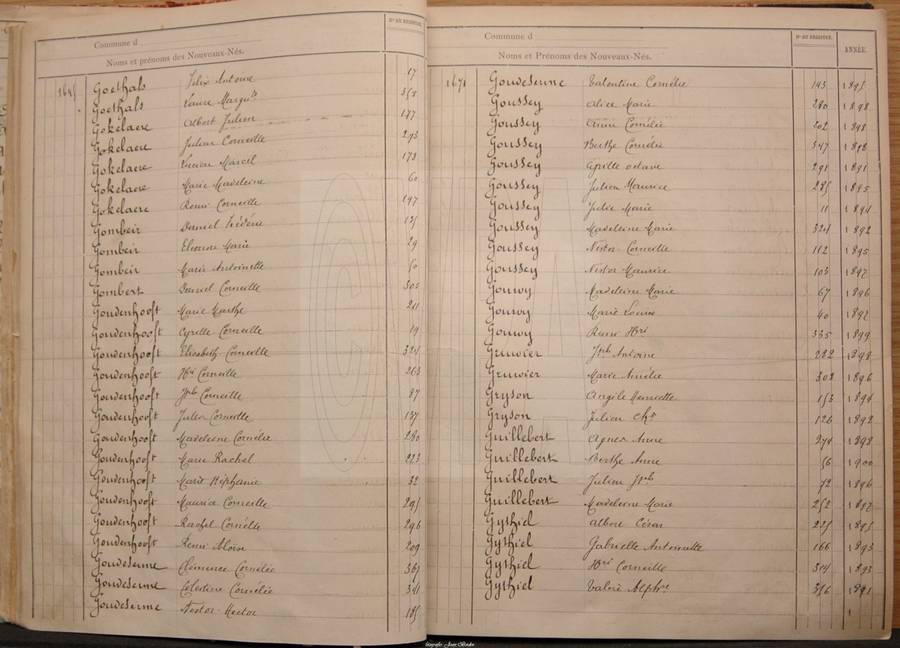 Commune d
Noms et prénoms des Nouveaux-Nés.
N° DU REGISTRE.
Goethals Felix Antoine 17
Goethals Laure Margte 355
Gokelaere Albert Julien 177
Gokelaere Julien Corneille 293
Gokelaere Lucien Marcel 173
Gokelaere Marie Madeleine 60
Gokelaere Remi Corneille 197
Gombeir Daniel Frédéric 135
Gombeir Eleonore Marie 29
Gombeir Marie Antoinette 50
Gombert Daniel Corneille 305
Goudenhooft Marie Marthe 211
Goudenhooft Cyrille Corneille 19
Goudenhooft Elisabeth Cornélie 324
Goudenhooft Hri Corneille 263
Goudenhooft Jph Corneille 87
Goudenhooft Jules Corneille 137
Goudenhooft Madeleine Cornélie 280
Goudenhooft Marie Rachel 223
Goudenhooft Marie Stéphanie 32
Goudenhooft Maurice Corneille 295
Goudenhooft Rachel Cornélie 296
Goudenhooft Remi Aloïse 209
Goudeserme Clémence Cornélie 369
Goudeserme Célestine Cornélie 341
Goudeserme Nestor Hector 185
Commune d
Noms et Prénoms des Nouveaux-Nés.
N° DU REGISTRE.
ANNÉE.
1671 Goudeserme Valentine Cornélie 143 1895
Goussey Alice Marie 280 1898
Goussey Anna Cornélie 202 1898
Goussey Berthe Cornélie 347 1898
Goussey Octave 291 1891
Goussey Julien Maurice 235 1895
Goussey Julie Marie 11 1894
Goussey Madeleine Marie 324 1892
Goussey Nestor Corneille 112 1895
Goussey Nestor Maurice 103 1897
Gouwy Madeleine Marie 67 1896
Gouwy Marie Louise 40 1892
Gouwy Remi Hri 335 1899
Gruwier Jph Antoine 222 1898
Gruwier Marie Amélie 302 1896
Gryson Angèle Henriette 153 1894
Gryson Julien Chs 126 1892
Guillebert Agnès Anne 274 1898
Guillebert Berthe Anne 56 1900
Guillebert Julien Jph 72 1896
Guillebert Madeleine Marie 252 1897
Gythiel Albert César 225 1895
Gythiel Gabrielle Antoinette 166 1893
Gythiel Hri Corneille 304 1893
Gythiel Valère Alphse 356 1891